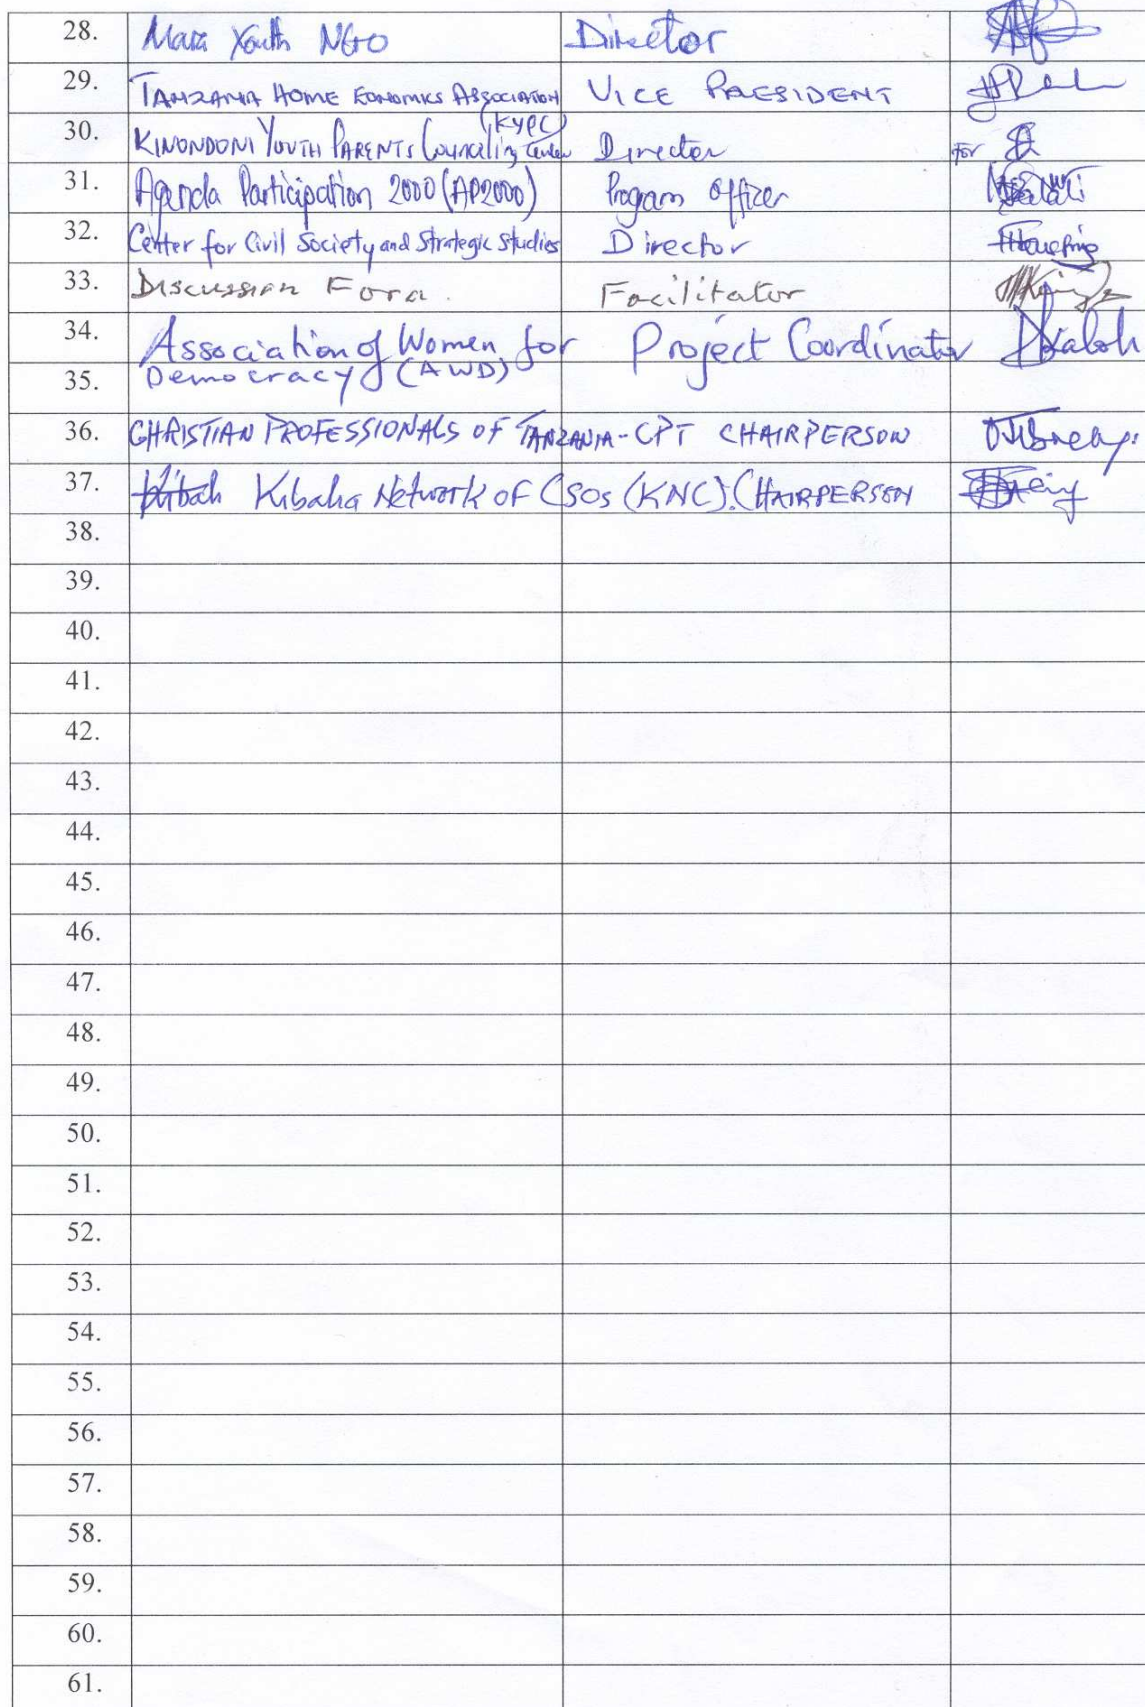 28. Mara Youth NGO Director
29. TANZANIA HOME ECONOMICS ASSOCIATION VICE PRESIDENT
(KYPC)
30. KINONDONI YOUTH PARENTS Counciling Center Director For
31. Agenda Participation 2000 (AP2000) Program Officer
32. Center for Civil Society and Strategic Studies Director
33. Discussion Fora. Facilitator
34. Association of Women for Project Coordinator
35. Democracy (AWD)
36. CHRISTIAN PROFESSIONALS OF TANZANIA-CPT CHAIRPERSON
37. Kibah Kibaha Network OF CSOs (KNC). CHAIRPERSON
38.
39.
40.
41.
42.
43.
44.
45.
46.
47.
48.
49.
50.
51.
52.
53.
54.
55.
56.
57.
58.
59.
60.
61.